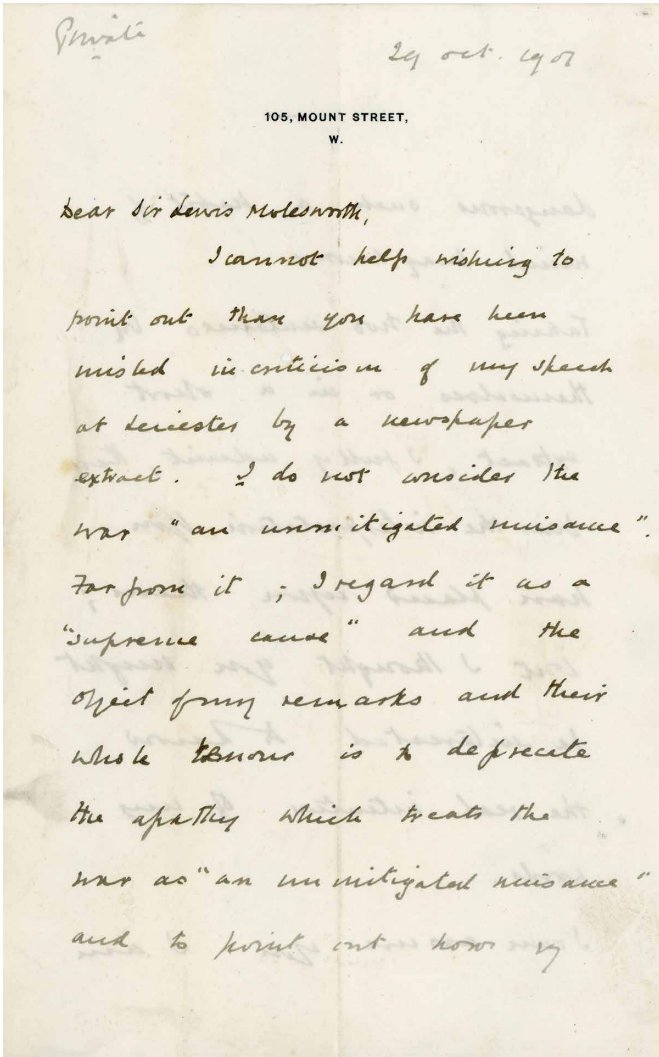 Private
29 Oct. 1901
105, MOUNT STREET,
W.
Dear Sir Lewis Molesworth,
I cannot help wishing to
point out that you have been
misled in criticism of my speech
at Leicester by a newspaper
extract. I do not consider the
war "an unmitigated nuisance".
Far from it; I regard it as a
"supreme cause" and the
object of my remarks and their
whole tenour is to deprecate
the apathy which treats the
war as "an unmitigated nuisance"
and to point out how